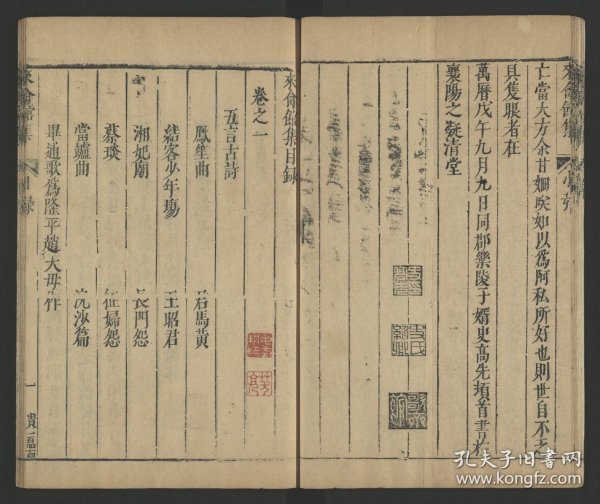 亡當大方余甘嫺 矣如以爲阿私所好也則世自不乏
具隻眼者在
萬曆戊午九月九日同郡樂陵子婿史高先頓首書於
襄陽之凝清堂
來禽館集 小序
來禽館集目錄
卷之一
五言古詩
鳳笙曲 君馬黃
結客少年場 王昭君
湘妃廟 長門怨
蔡琰 征婦怨
當壚曲 浣沙篇
畢通歌爲隆平趙大母作
來禽館集 目錄
一
孔夫子旧书网
www.kongfz.com